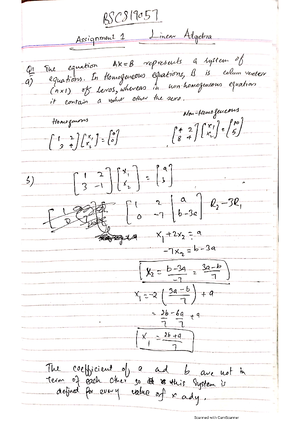 BSCS19057
Assignment 1 Linear Algebra
Q1 The equation AX=B represents a system of
a) equations. In Homogeneous equations, B is column vector
(n×1) of zeros, whereas in non homogeneous equation
it contain a value other the zero.
Homogeneous Non-homogeneous
b) [1 2; 3 -1] [x₁; x₂] = [a; b]
[1 2 | a; 0 -7 | b-3a] R₂-3R₁
x₁+2x₂ = a
-7x₂ = b-3a
x₂ = b-3a/-7 = 3a-b/7
x₁ = -2(3a-b/7) + a
= 2b-6a/7 + a
x₁ = 2b+a/7
The coefficient of a and b are not in
term of each other so this system is
defined for every value of x and y.
Scanned with CamScanner